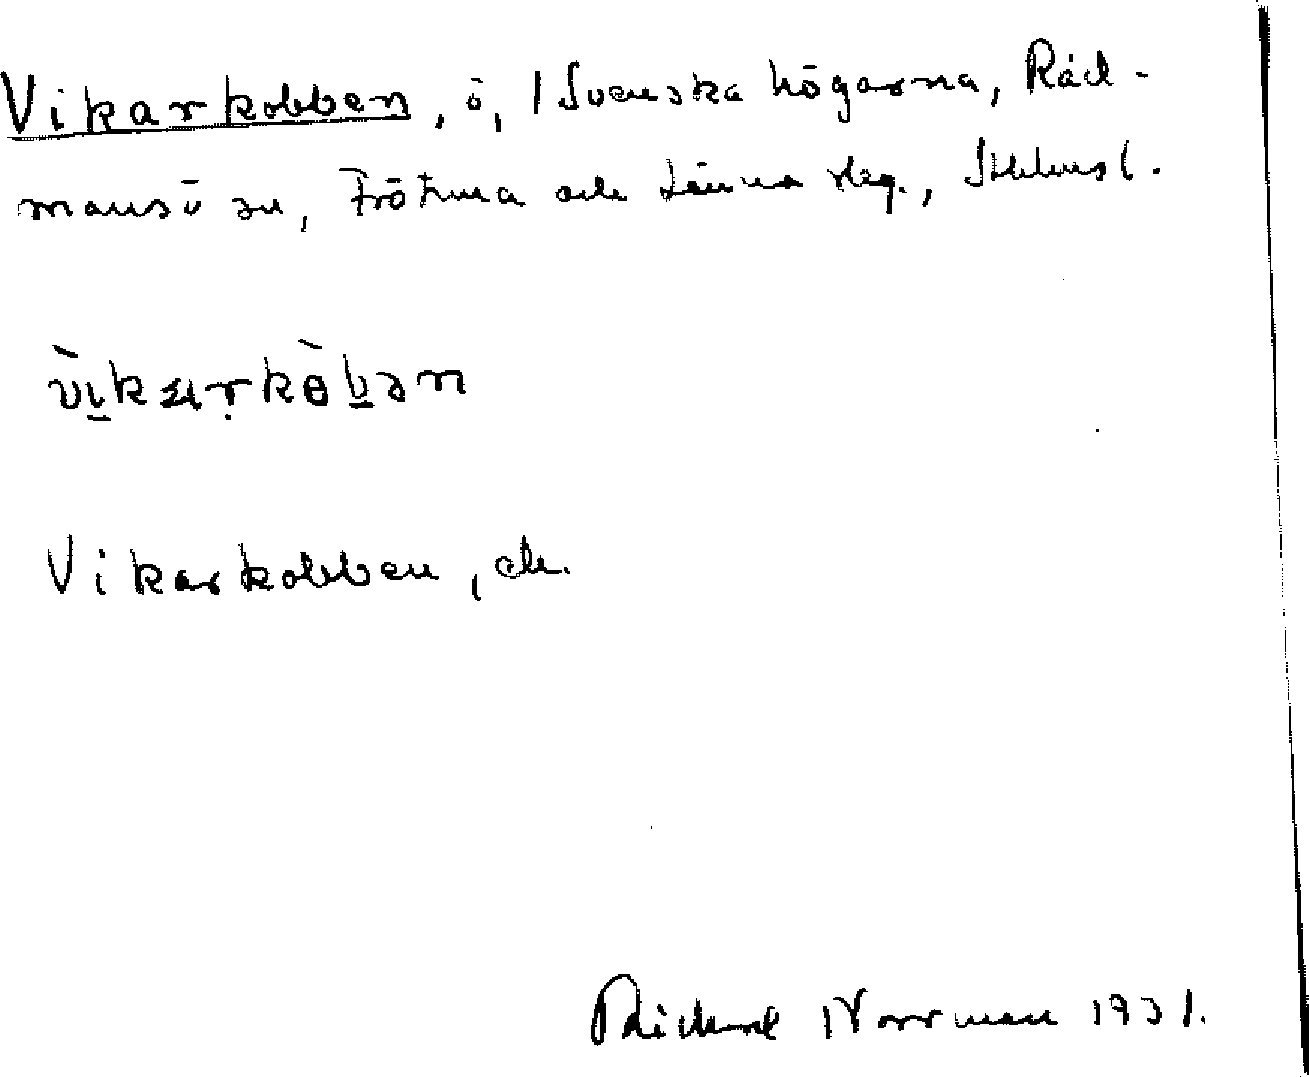 Vikarkobben, ö, i Svenska högarna, Råd-
mansö sn, Frötuna och Länna skg., Sthlms l.
Vikarkobben, ek.
Rickard Norrman 1931.